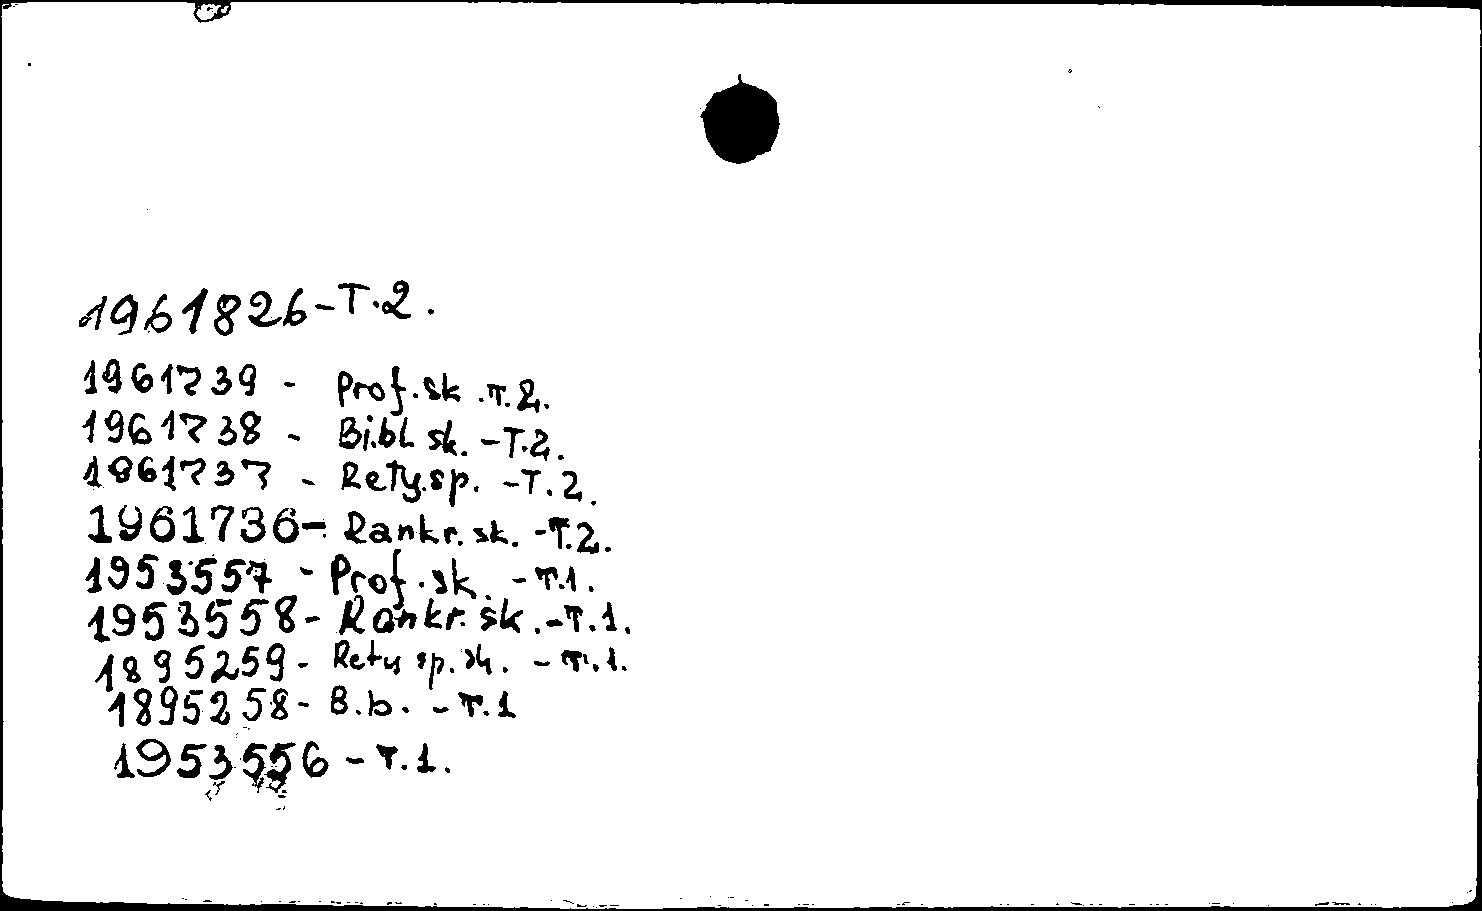 1961826-T.2.
1961739 - Prof.sk.T.2.
1961738 - Bibl.sk.-T.2.
1961737 - Rety.sp. -T.2.
1961736- Rankr.sk. -T.2.
1953557 - Prof.sk. -T.1.
1953558- Rankr.sk.-T.1.
1895259- Rety sp.sk. -T.1.
1895258- B.b. -T.1
1953556 -T.1.